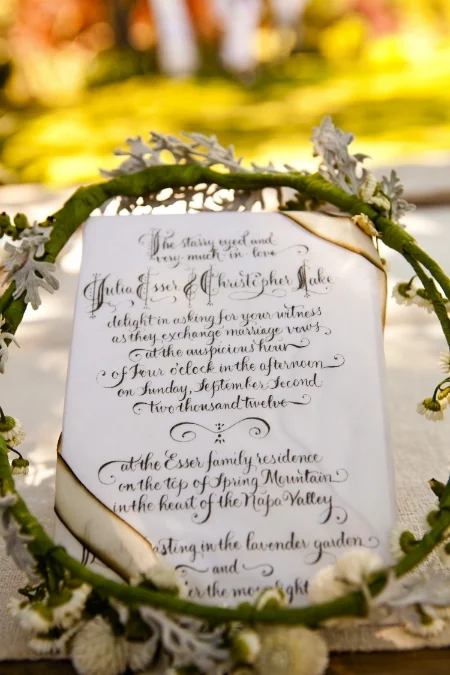 The starry eyed and
very much in love
Julia Esser & Christopher Lake
delight in asking for your witness
as they exchange marriage vows
at the auspicious hour
of Four o'clock in the afternoon
on Sunday, September Second
two thousand twelve
at the Esser family residence
on the top of Spring Mountain
in the heart of the Napa Valley
asting in the lavender garden
and
er the moonlight